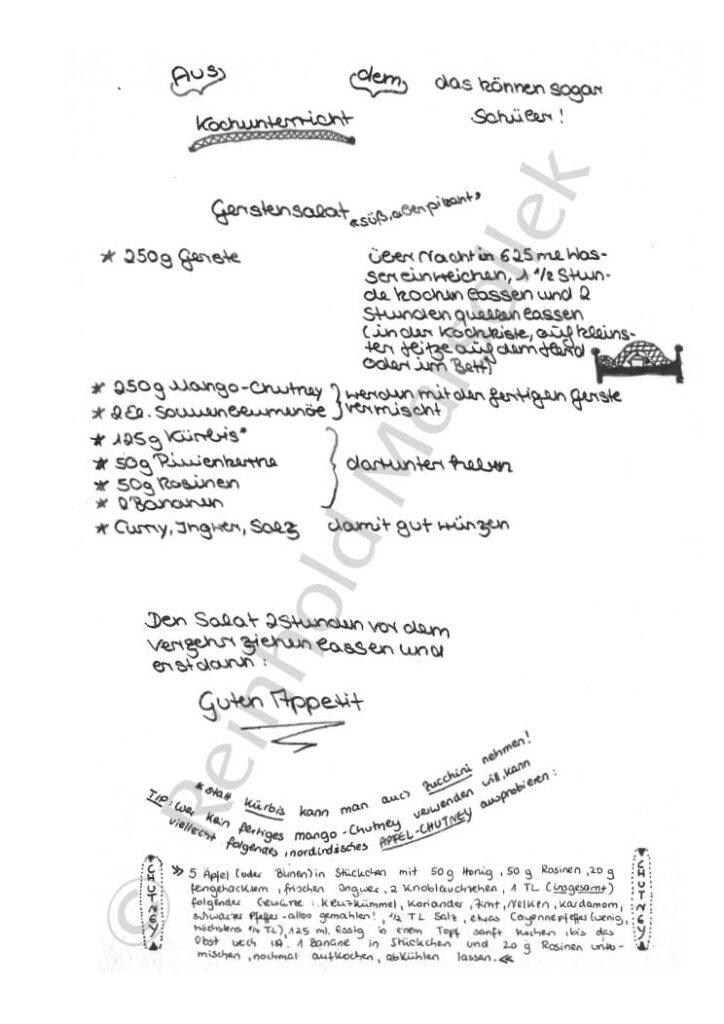 Aus dem das können sogar
Kochunterricht Schüler!
Gerstensalat „süß, aber pikant"
* 250g Gerste
über Nacht in 625 ml Was-
ser einweichen, 1 1/2 Stun-
de kochen lassen und 2
Stunden quellen lassen
(in der Kochkiste, auf kleins-
ter Hitze auf dem Herd
oder im Bett)
* 250g Mango-Chutney } werden mit der fertigen Gerste
* 2 El. Sonnenblumenöl } vermischt
* 125g Kürbis*
* 50g Pinienkerne } darunter heben
* 50g Rosinen
* 2 Bananen
* Curry, Ingwer, Salz damit gut würzen
Den Salat 2 Stunden vor dem
Verzehr ziehen lassen und
erst dann:
Guten Appetit
*statt Kürbis kann man auch Zucchini nehmen!
TIP: Wer kein fertiges mango-Chutney verwenden will, kann
vielleicht folgendes, nordindisches ÄPFEL-CHUTNEY ausprobieren:
CHUTNEY
» 5 Äpfel (oder Birnen) in Stückchen mit 50g Honig, 50g Rosinen, 20g
feingehacktem, frischen Ingwer, 2 Knoblauchzehen, 1 TL (insgesamt)
folgender Gewürze: Kreuzkümmel, Koriander, Zimt, Nelken, Kardamom,
schwarzer Pfeffer - alles gemahlen!, 1/2 TL Salz, etwas Cayennepfeffer (wenig,
höchstens 1/4 TL), 125 ml. Essig in einem Topf sanft kochen, bis das
Obst weich ist. 1 Banane in Stückchen und 20 g Rosinen unter-
mischen, nochmal aufkochen, abkühlen lassen. «
CHUTNEY
© Reinhold Marsollek